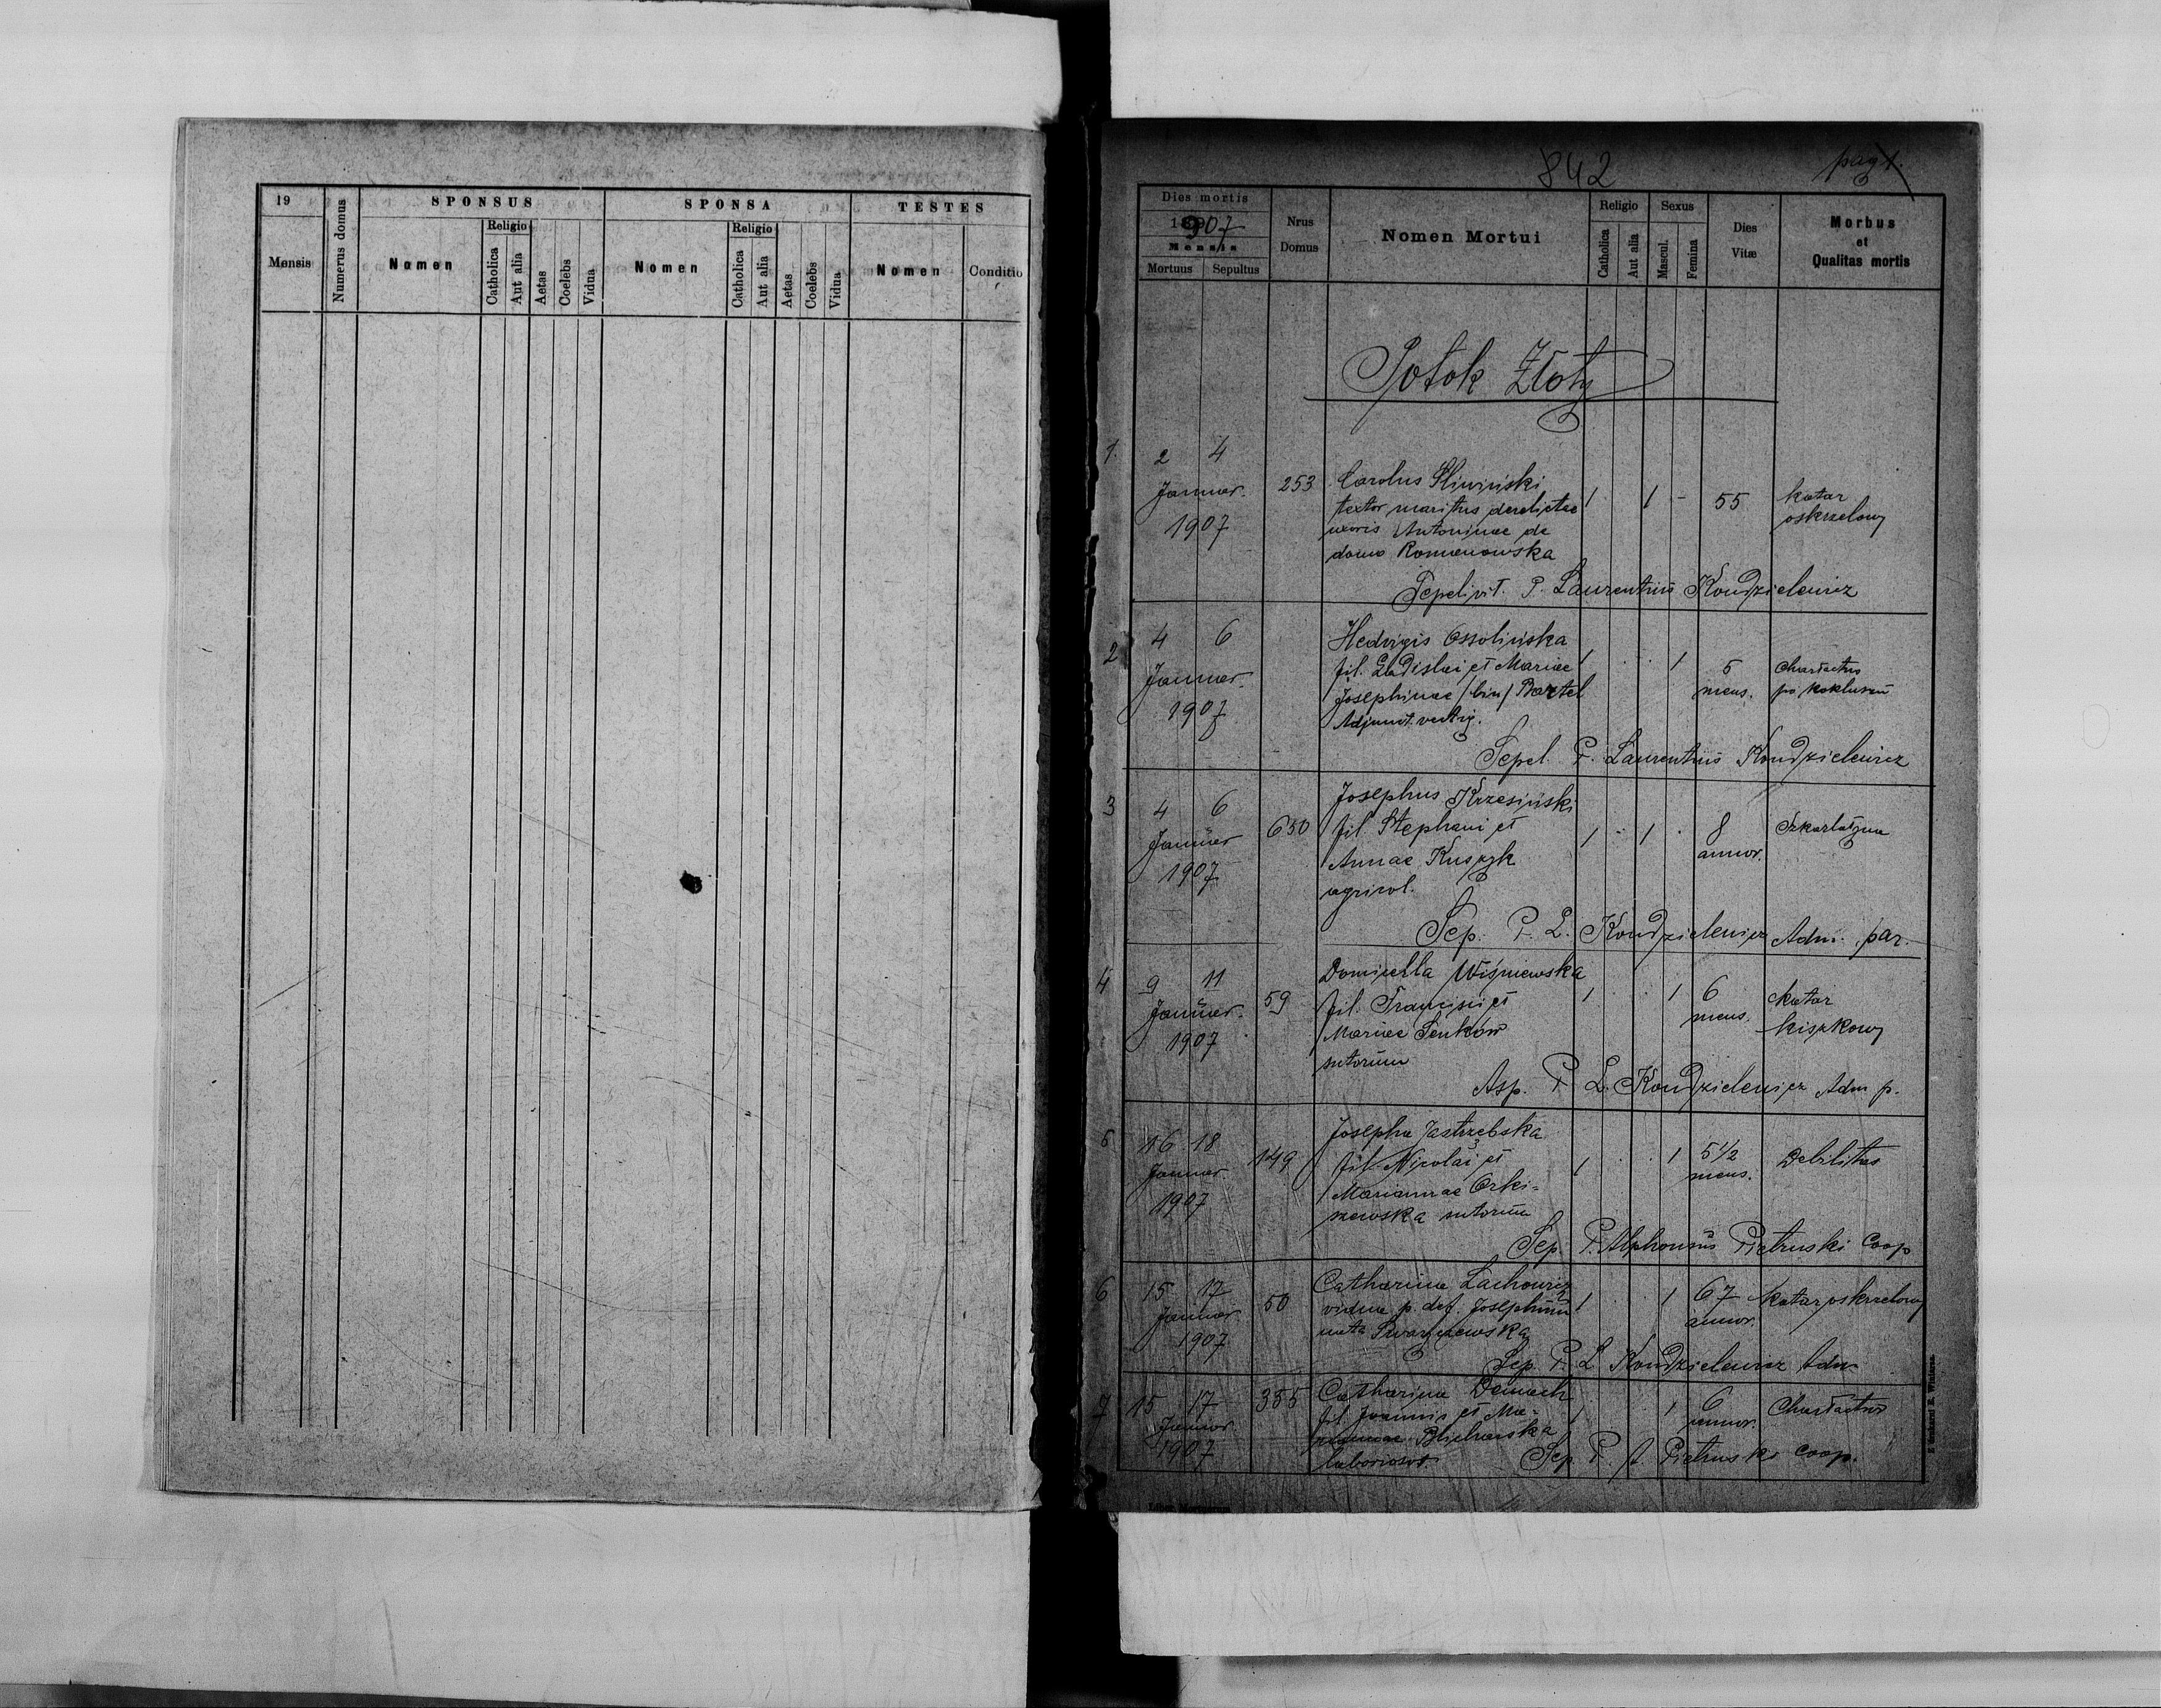 19
Mensis
Numerus domus
SPONSUS
Nomen
Religio
Catholica
Aut alia
Aetas
Coelebs
Vidua
SPONSA
Nomen
Religio
Catholica
Aut alia
Aetas
Coelebs
Vidua
TESTES
Nomen
Conditio
842
pag 1.
Dies mortis
1907
Mensis
Mortuus
Sepultus
Nrus
Domus
Nomen Mortui
Religio
Catholica
Aut alia
Sexus
Mascul.
Femina
Dies
Vitæ
Morbus
et
Qualitas mortis
Potok Złoty
1. 2 4
Januar. 253 Carolus Śliwiński 1 1 - 55 katar
1907 textor maritus derelictae oskrzelowy
uxoris Antoninae de
domo Romanowska
Sepelivit P. Laurentius Kondzielewicz
2 4 6 Hedvigis Ossolińska
Januar. fil. Ladislai et Mariae 1 1 5 Charłactwo
1907 Josephinae /bin/ Bartel mens. po kokluszu
Adjunct. vectig.
Sepel. P. Laurentius Kondzielewicz
3 4 6 Josephus Krzesiński
Januar 650 fil. Stephani et 1 1 8 Szkarlatyna
1907 Annae Kuszyk annor.
agricol.
Sep. P. L. Kondzielewicz Adm. par.
4 9 11 Domicella Wiśniewska
Januar. 59 fil. Francisci et 1 1 6 katar
1907 Mariae Senków mens. kiszkowy
sutorum
Asp. P. L. Kondzielewicz Adm p.
5 16 18 Josepha Jastrzebska
Januar 149 fil. Nicolai et 1 1 5 1/2 Debilitas
1907 Mariannae Orki- mens.
szewska sutorum
Sep. P. Alphonsus Pietruski Coop
6 15 17 Catharina Lachowicz 67 katar oskrzelowy
Januar 50 vidua p. def. Josephum 1 1 annor.
1907 nata
Sep. P. L. Kondzielewicz Adm
7 15 17 355 Catharina 1 6 Charłactwo
Januar fil. Joannis et Ma- 1 annor.
1907 riannae Blicharska
laborios. Sep. P. A. Pietruski coop.
Liber Mortuorum